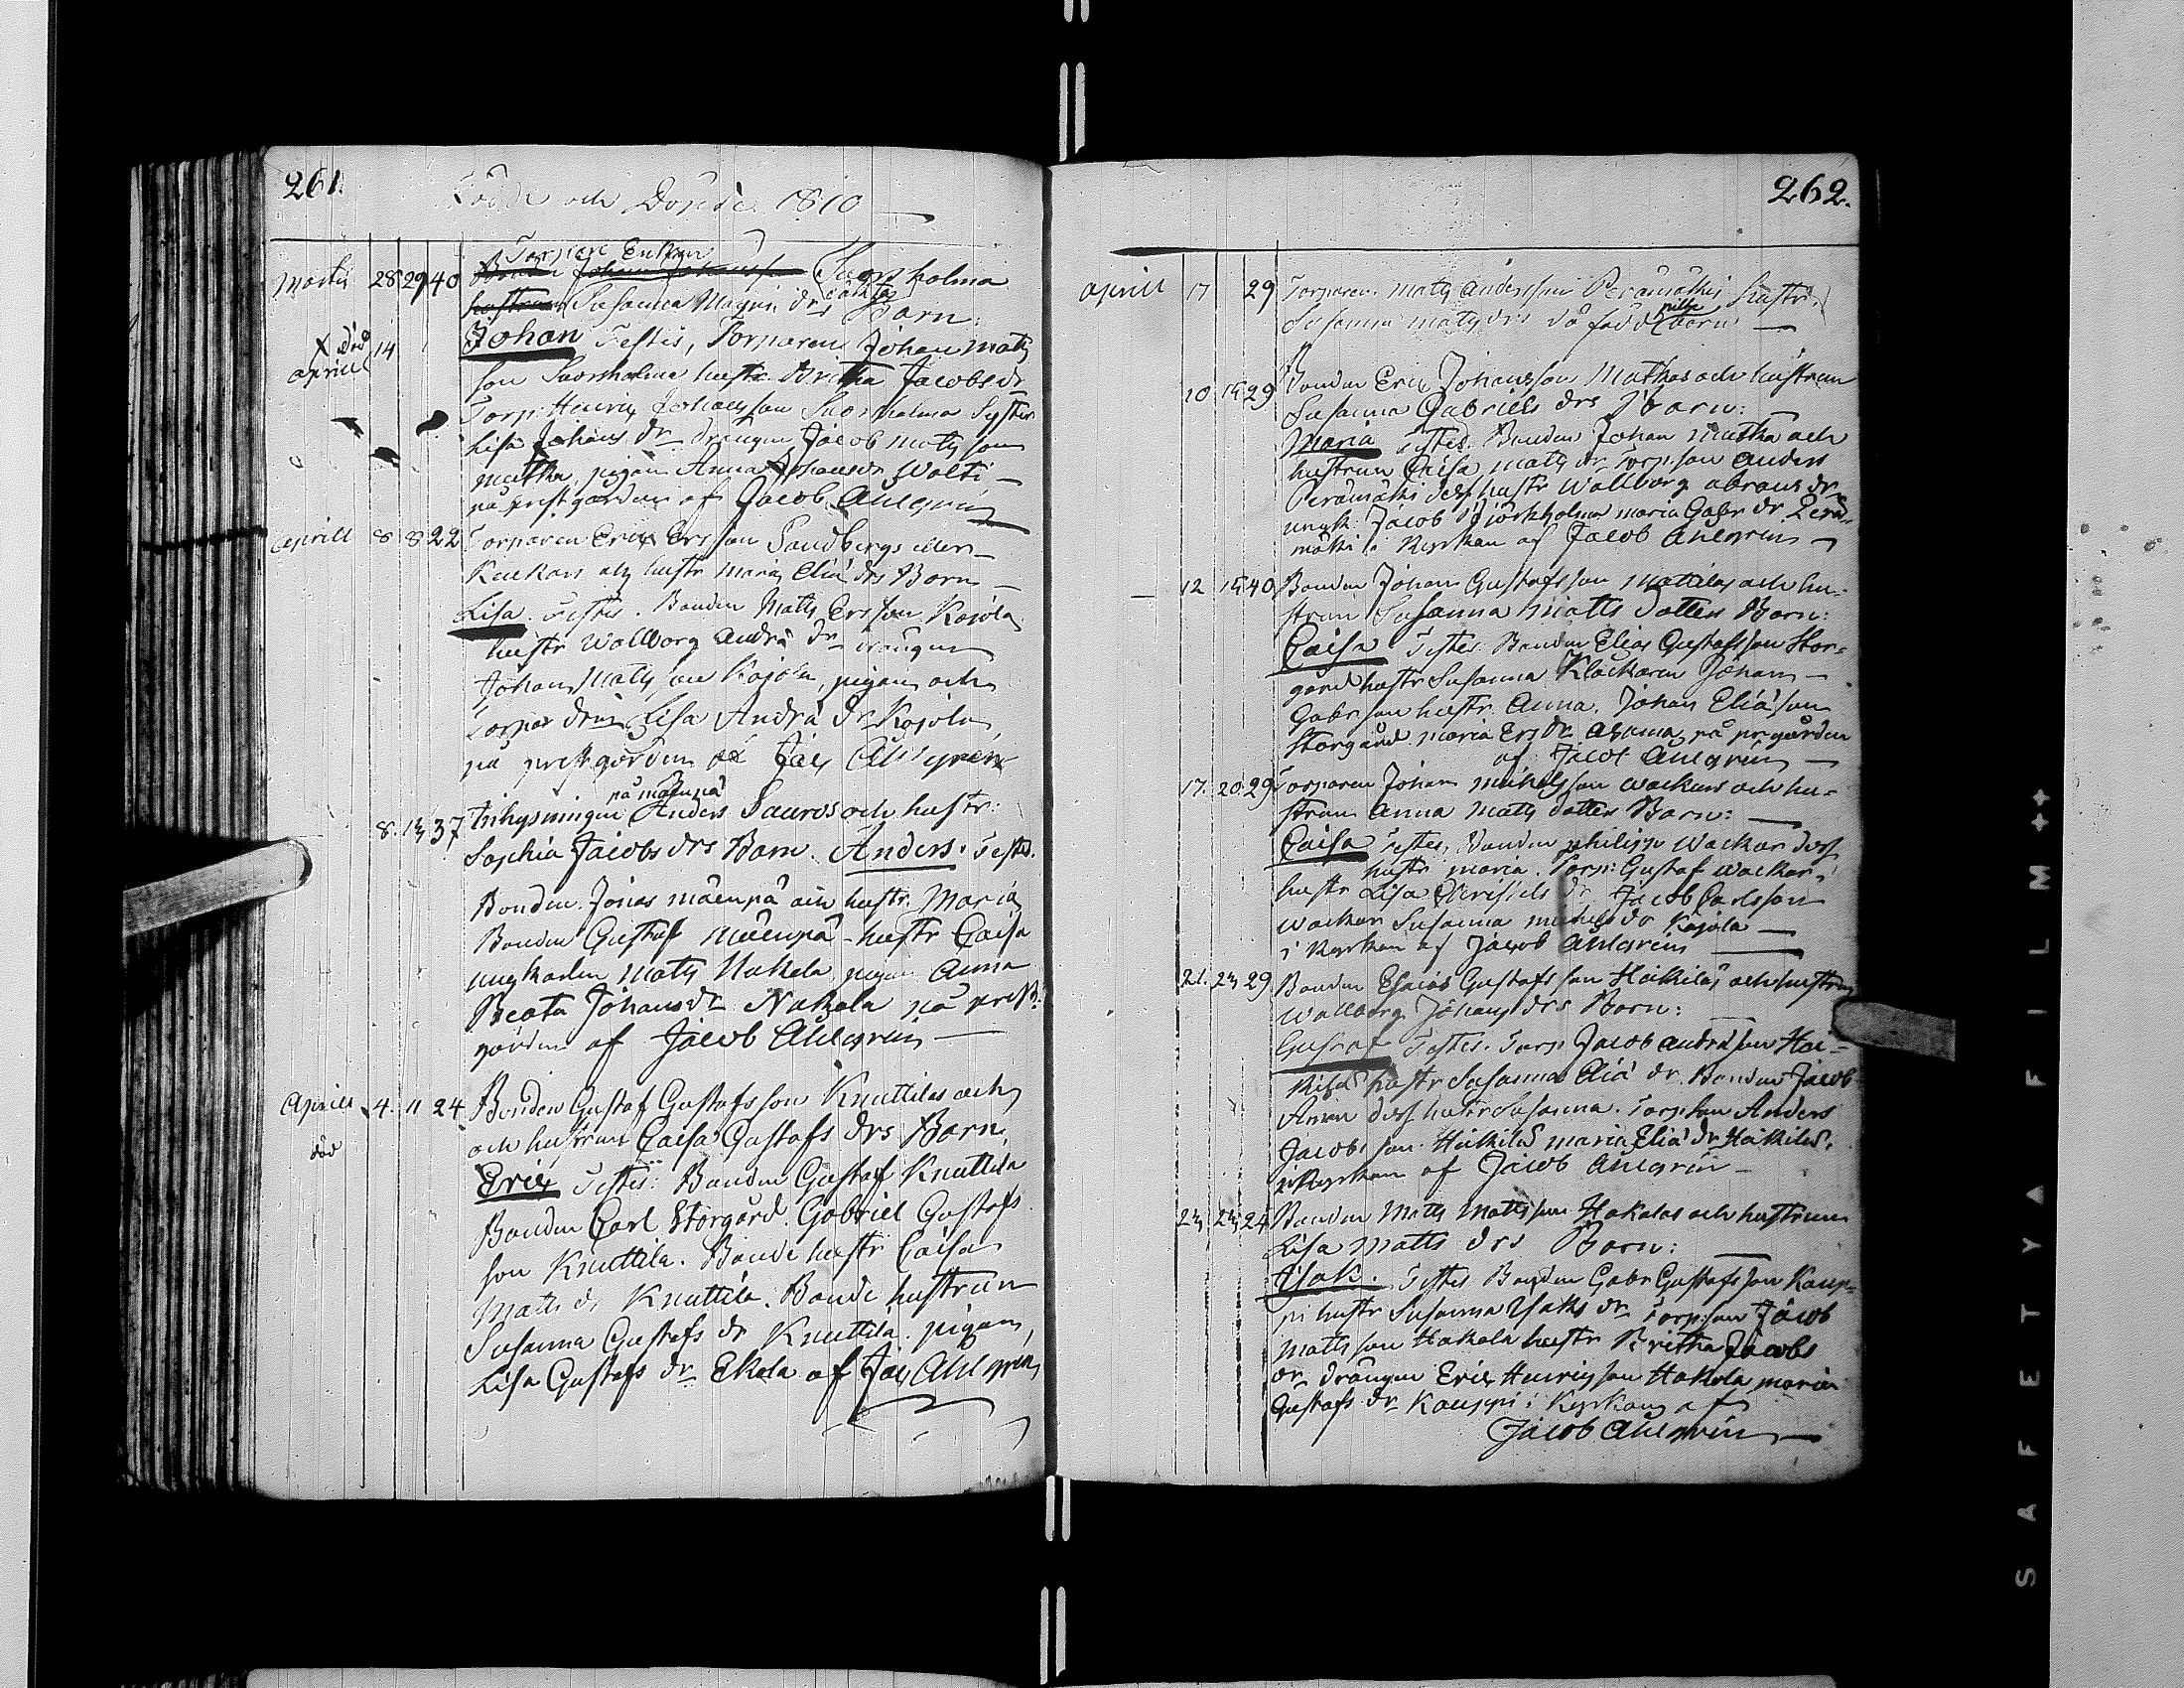 261.
Födde och Döpte 1810
Martii 28 29 40 Bonden Johan Johansson Suorsholma
Torpare Enkan
hustrun Susanna Magni drs Barn:
X död aprill 14
Johan Testes, Torparen Johan Matts
son Suorsholma hustr Britha Jacobs dr
Torp: Henrix Johansson Suorsholma Syster
Lisa Johans dr drängen Jacob Matts son
Mutka, pigan Anna Johans dr Wolti
på prestgården af Jacob Ahlgren
Aprill 8 8 22 Torparen Erix Ersson Sandbergs eller
hustr Maria Eliä drs Barn
Lisa. Testes. Bonden Matts Ersson Kojola
hustr Wallborg Andrä dr drängen
Johan Matts son Kojola, pigan och
Lisa Andrä dr Kojola
på prestgården af Jac Ahlgren
på mäenpä
8. 13 37 Inhysningen Anders Sauros och hustr:
Sophia Jacobs drs Barn. Anders. Testes.
Bonden Jonas mäenpä och hustr. Maria
Bonden Gustaf Mäenpä - hustr Caisa
ungkarlen Matts Nakola pigan Anna
Beata Johans dr Nakola på prest-
gården af Jacob Ahlgren
Aprill 4. 11 24 Bonden Gustaf Gustafsson Knuttilas och
död
och hustrun Caisa Gustafs drs Barn,
Erix Testes: Bonden Gustaf Knuttila
Bonden Carl Storgård. Gabriel Gustafs
son Knuttila. Bonde hustr Caisa
Matts dr Knuttila. Bonde hustrun
Susanna Gustafs dr Knuttila. pigan,
Lisa Gustafs dr Ekola af Jac Ahlgren
262.
Aprill 17 29 Torparen Matts Andersson Perämäkis hustr.
Susanna Matts drs dö född barn
10 15 29 Bonden Erix Johansson Mutkas och hustrun
Susanna Gabriels drs barn:
Maria Testes. Bonden Johan Mutka och
hustrun Caisa Matts dr Torp: son Anders
Perämäki dess hustr Wallborg Abrams dr
ungk: Jacob Björkholma Maria Gabr dr Perä-
mäki i Kyrkan af Jacob Ahlgren
12 15 40 Bonden Johan Gustafsson Mattilas och hu-
strun Susanna Matts Dotters Barn:
Caisa Testes. Bonden Elias Gustafsson Stor-
gård hustr Susanna Klockaren Johan
Gabrsson hustr Anna. Johan Eliä son
Storgård Maria Ers dr på prgården
af Jacob Ahlgren
17. 20. 29 Torparen Johan Michelsson Wackurs och hu-
strun Anna Matts dotters Barn:
Caisa Testes, Bonden Philippo Wackur dess
hustr Maria. Torp: Gustaf Wackur,
hustr Lisa dr Jacob Carlsson
Wackur Susanna Michels dr Kojola
i Kyrkan af Jacob Ahlgren
21. 23 29 Bonden Esaias Gustafs son Häikiläs och hustrun
Wallborg Johans drs Barn:
Gustaf Testes. Torp Jacob Andrä son Häi-
kilä hustr Susanna Eliä dr. Bonden Jacob
dess hustr Susanna. Torp: son Anders
Jacobs son Häikilä Maria Eliä dr Häikilä.
i Kyrkan af Jacob Ahlgren
23 23 24 Bonden Matts Mattsson Hakolas och hustrun
Lisa Matts drs Barn:
Isak. Testes Bonden Gabr Gustafsson Kaup-
pi hustr Susanna Isaks dr Torp: son Jacob
Matts son Hakola hustr Britha Jacobs
dr drängen Erix Henrixson Hakola Maria
Gustafs dr Kauppi i Kyrkan af
Jacob Ahlgren
SAFETY FILM